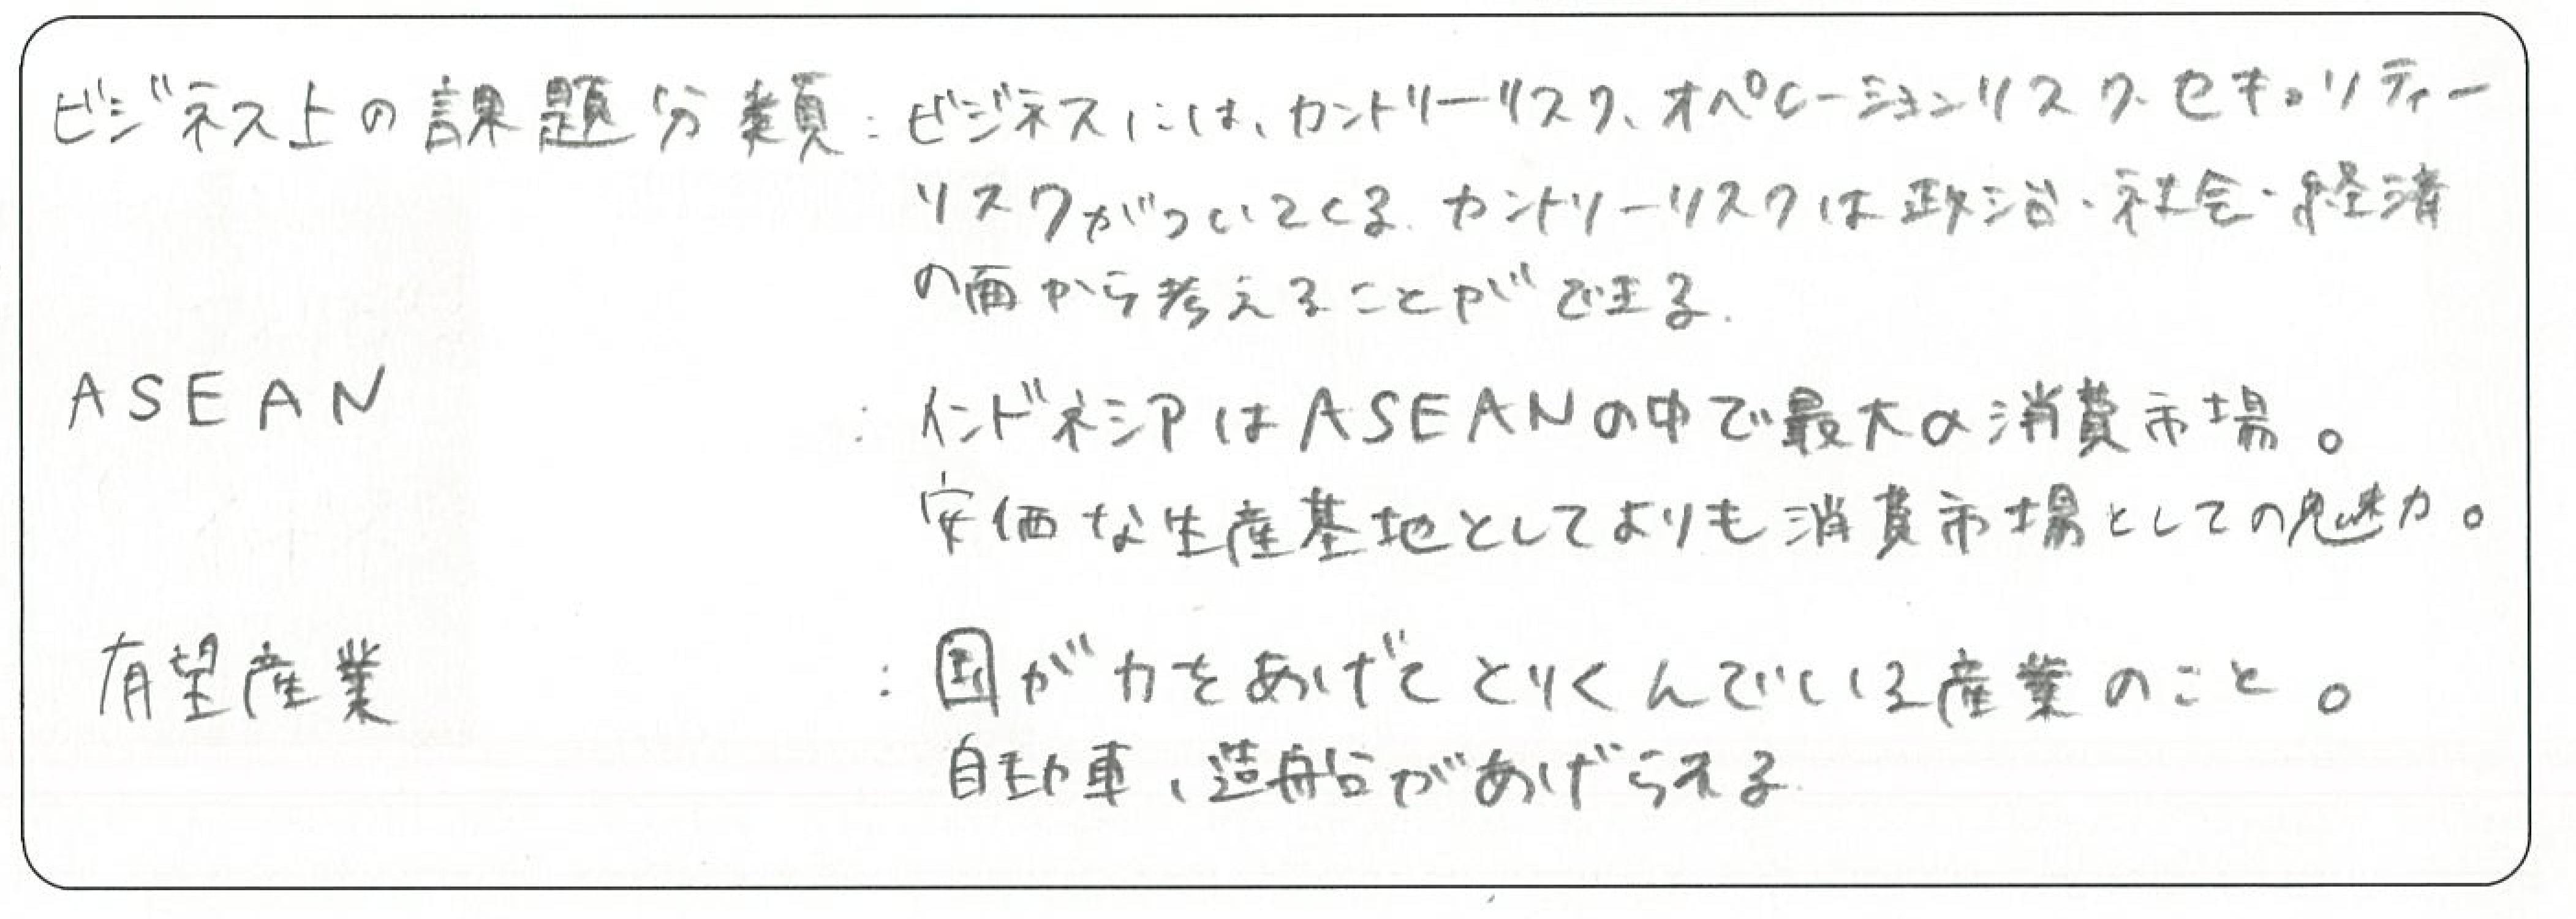 ビジネス上の課題分類：ビジネスには、カントリーリスク、オペレーションリスク、セキュリティー
リスクがついてくる。カントリーリスクは政治・社会・経済
の面から考えることができる。
ASEAN：インドネシアはASEANの中で最大の消費市場。
安価な生産基地としてよりも消費市場としての魅力。
有望産業：国が力をあげてとりくんでいる産業のこと。
自動車、造船があげられる